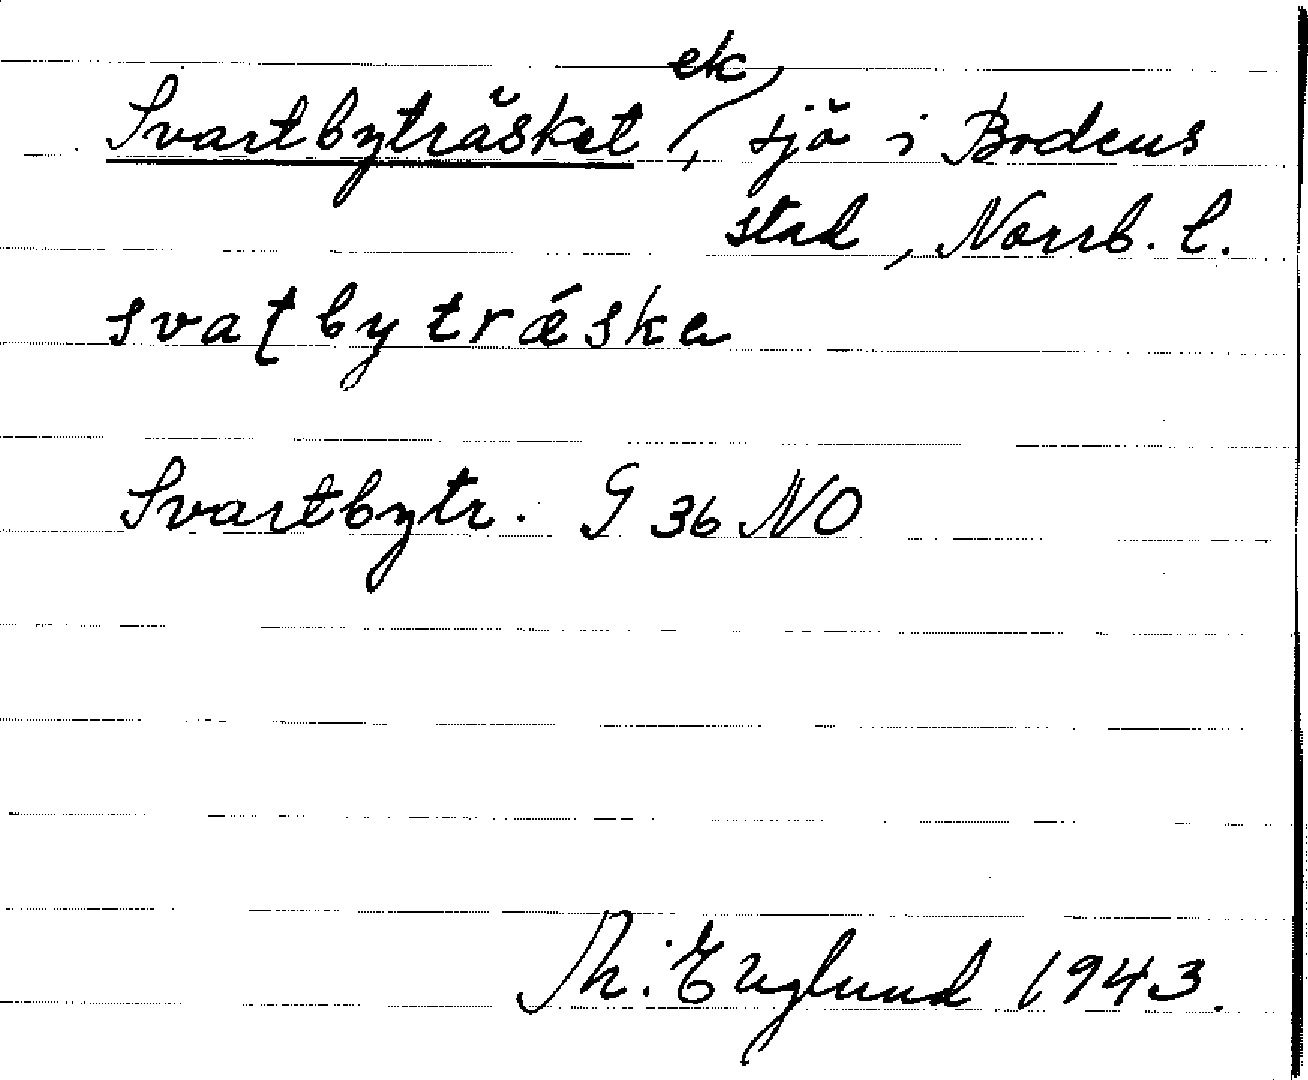 Svartbyträsket ek, sjö i Bodens
stad, Norrb. l.
svaʈbytrǽske
Svartbytr. G 36 NO
Th. Englund 1943.